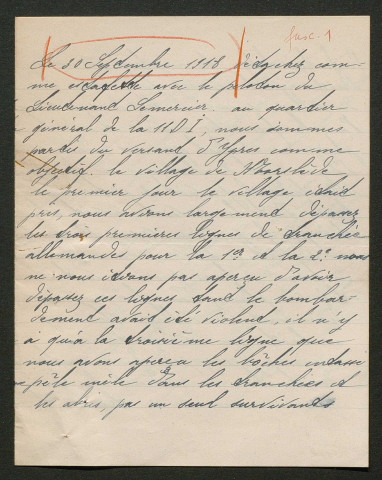 fasc. 1
Le 30 Septembre 1918 Détachez com-
me estafette avec le peloton du
Lieutenant Lemercier, au quartier
général de la 11 D I, nous sommes
parti du versant d'Ypres comme
objectif. le village de
le premier jour le village était
pris, nous avions largement dépassez
les trois premieres lignes de tranchée
allemandes pour la 1er et la 2e nous
ne nous étions pas aperçu d'avoir
dépassez ces lignes tant le bombar-
dement avait été violent, il n'y
a qu'a la troisième ligne que
nous avons aperçu les bôches entassé
pêle mêle dans les tranchées et
les abris, pas un seul survivants